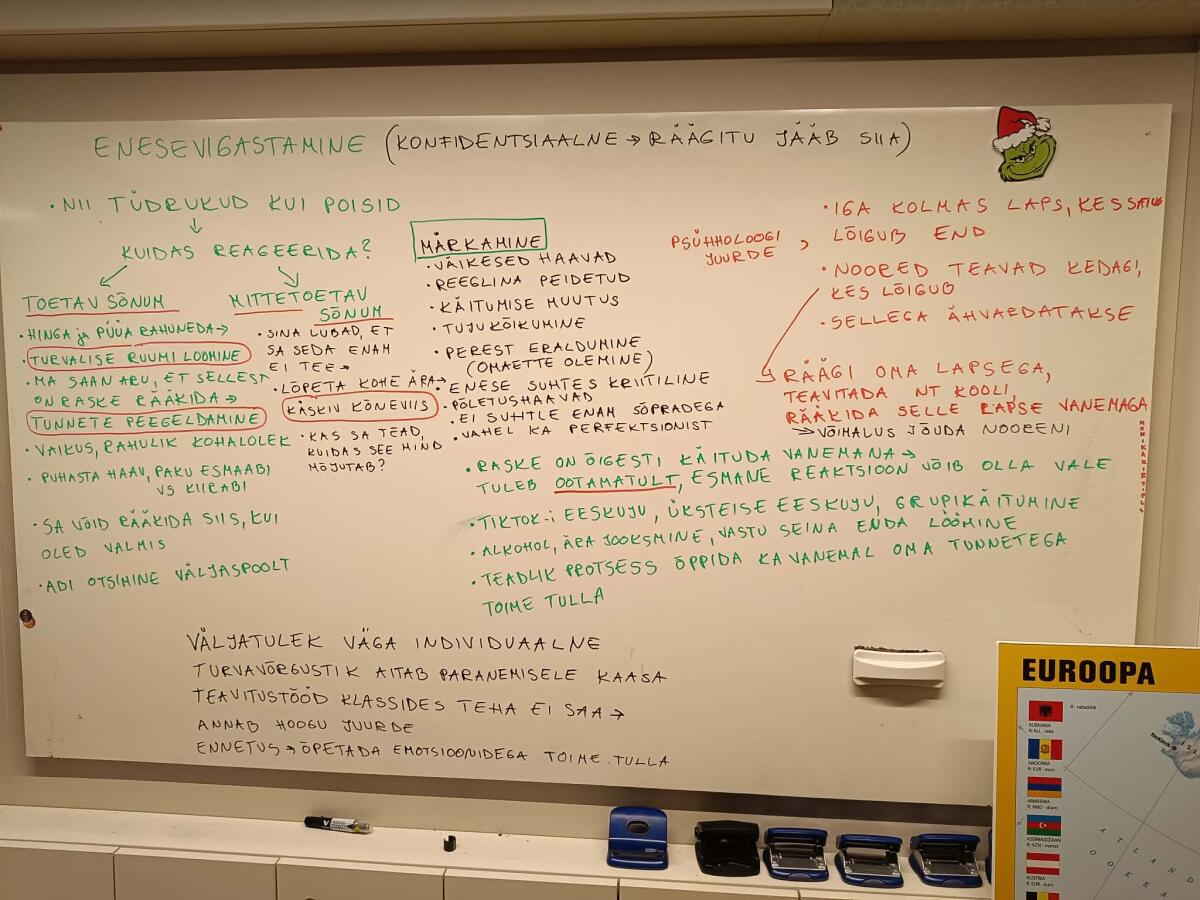 ENESEVIGASTAMINE (KONFIDENTSIAALNE → RÄÄGITU JÄÄB SIIA)
• NII TÜDRUKUD KUI POISID
KUIDAS REAGEERIDA?
TOETAV SÕNUM
• HINGA ja PÜÜA RAHUNEDA →
• TURVALISE RUUMI LOOMINE
• MA SAAN ARU, ET SELLEST
ON RASKE RÄÄKIDA →
TUNNETE PEEGELDAMINE
• VAIKUS, RAHULIK KOHALOLEK
• PUHASTA HAAV, PAKU ESMAABI
VS KIIRABI
• SA VÕID RÄÄKIDA SIIS, KUI
OLED VALMIS
• ABI OTSIMINE VÄLJASPOOLT
MITTETOETAV
SÕNUM
• SINA LUBAD, ET
SA SEDA ENAM
EI TEE →
• LÕPETA KOHE ÄRA →
KÄSKIV KÕNEVIIS
• KAS SA TEAD,
KUIDAS SEE MIND
MÕJUTAB?
MÄRKAMINE
• VÄIKESED HAAVAD
• REEGLINA PEIDETUD
• KÄITUMISE MUUTUS
• TUJUKÕIKUMINE
• PEREST ERALDUMINE
(OMAETTE OLEMINE)
• ENESE SUHTES KRIITILINE
• PÕLETUSHAAVAD
• EI SUHTLE ENAM SÕPRADEGA
• VAHEL KA PERFEKTSIONIST
PSÜHHOLOOGI
JUURDE,
• IGA KOLMAS LAPS, KES
LÕIGUB END
• NOORED TEAVAD KEDAGI,
KES LÕIGUB
• SELLEGA ÄHVARDATAKSE
RÄÄGI OMA LAPSEGA,
TEAVITADA NT KOOLI,
RÄÄKIDA SELLE LAPSE VANEMAGA
→ VÕIMALUS JÕUDA NOORENI
• RASKE ON ÕIGESTI KÄITUDA VANEMANA →
TULEB OOTAMATULT, ESMANE REAKTSIOON VÕIB OLLA VALE
• TIKTOK-i EESKUJU, ÜKSTEISE EESKUJU, GRUPIKÄITUMINE
• ALKOHOL, ÄRA JOOKSMINE, VASTU SEINA ENDA LÖÖMINE
• TEADLIK PROTSESS ÕPPIDA KA VANEMAL OMA TUNNETEGA
TOIME TULLA
VÄLJATULEK VÄGA INDIVIDUAALNE
TURVAVÕRGUSTIK AITAB PARANEMISELE KAASA
TEAVITUSTÖÖD KLASSIDES TEHA EI SAA →
ANNAB HOOGU JUURDE
ENNETUS → ÕPETADA EMOTSIOONIDEGA TOIME TULLA
EUROOPA
R - rahaühik
ALBAANIA
R: ALL - lekk
ANDORRA
R: EUR - euro
ARMEENIA
R: AMD - dram
ASERBAIDŽAAN
R: AZN - manat
AUSTRIA
R: EUR - euro